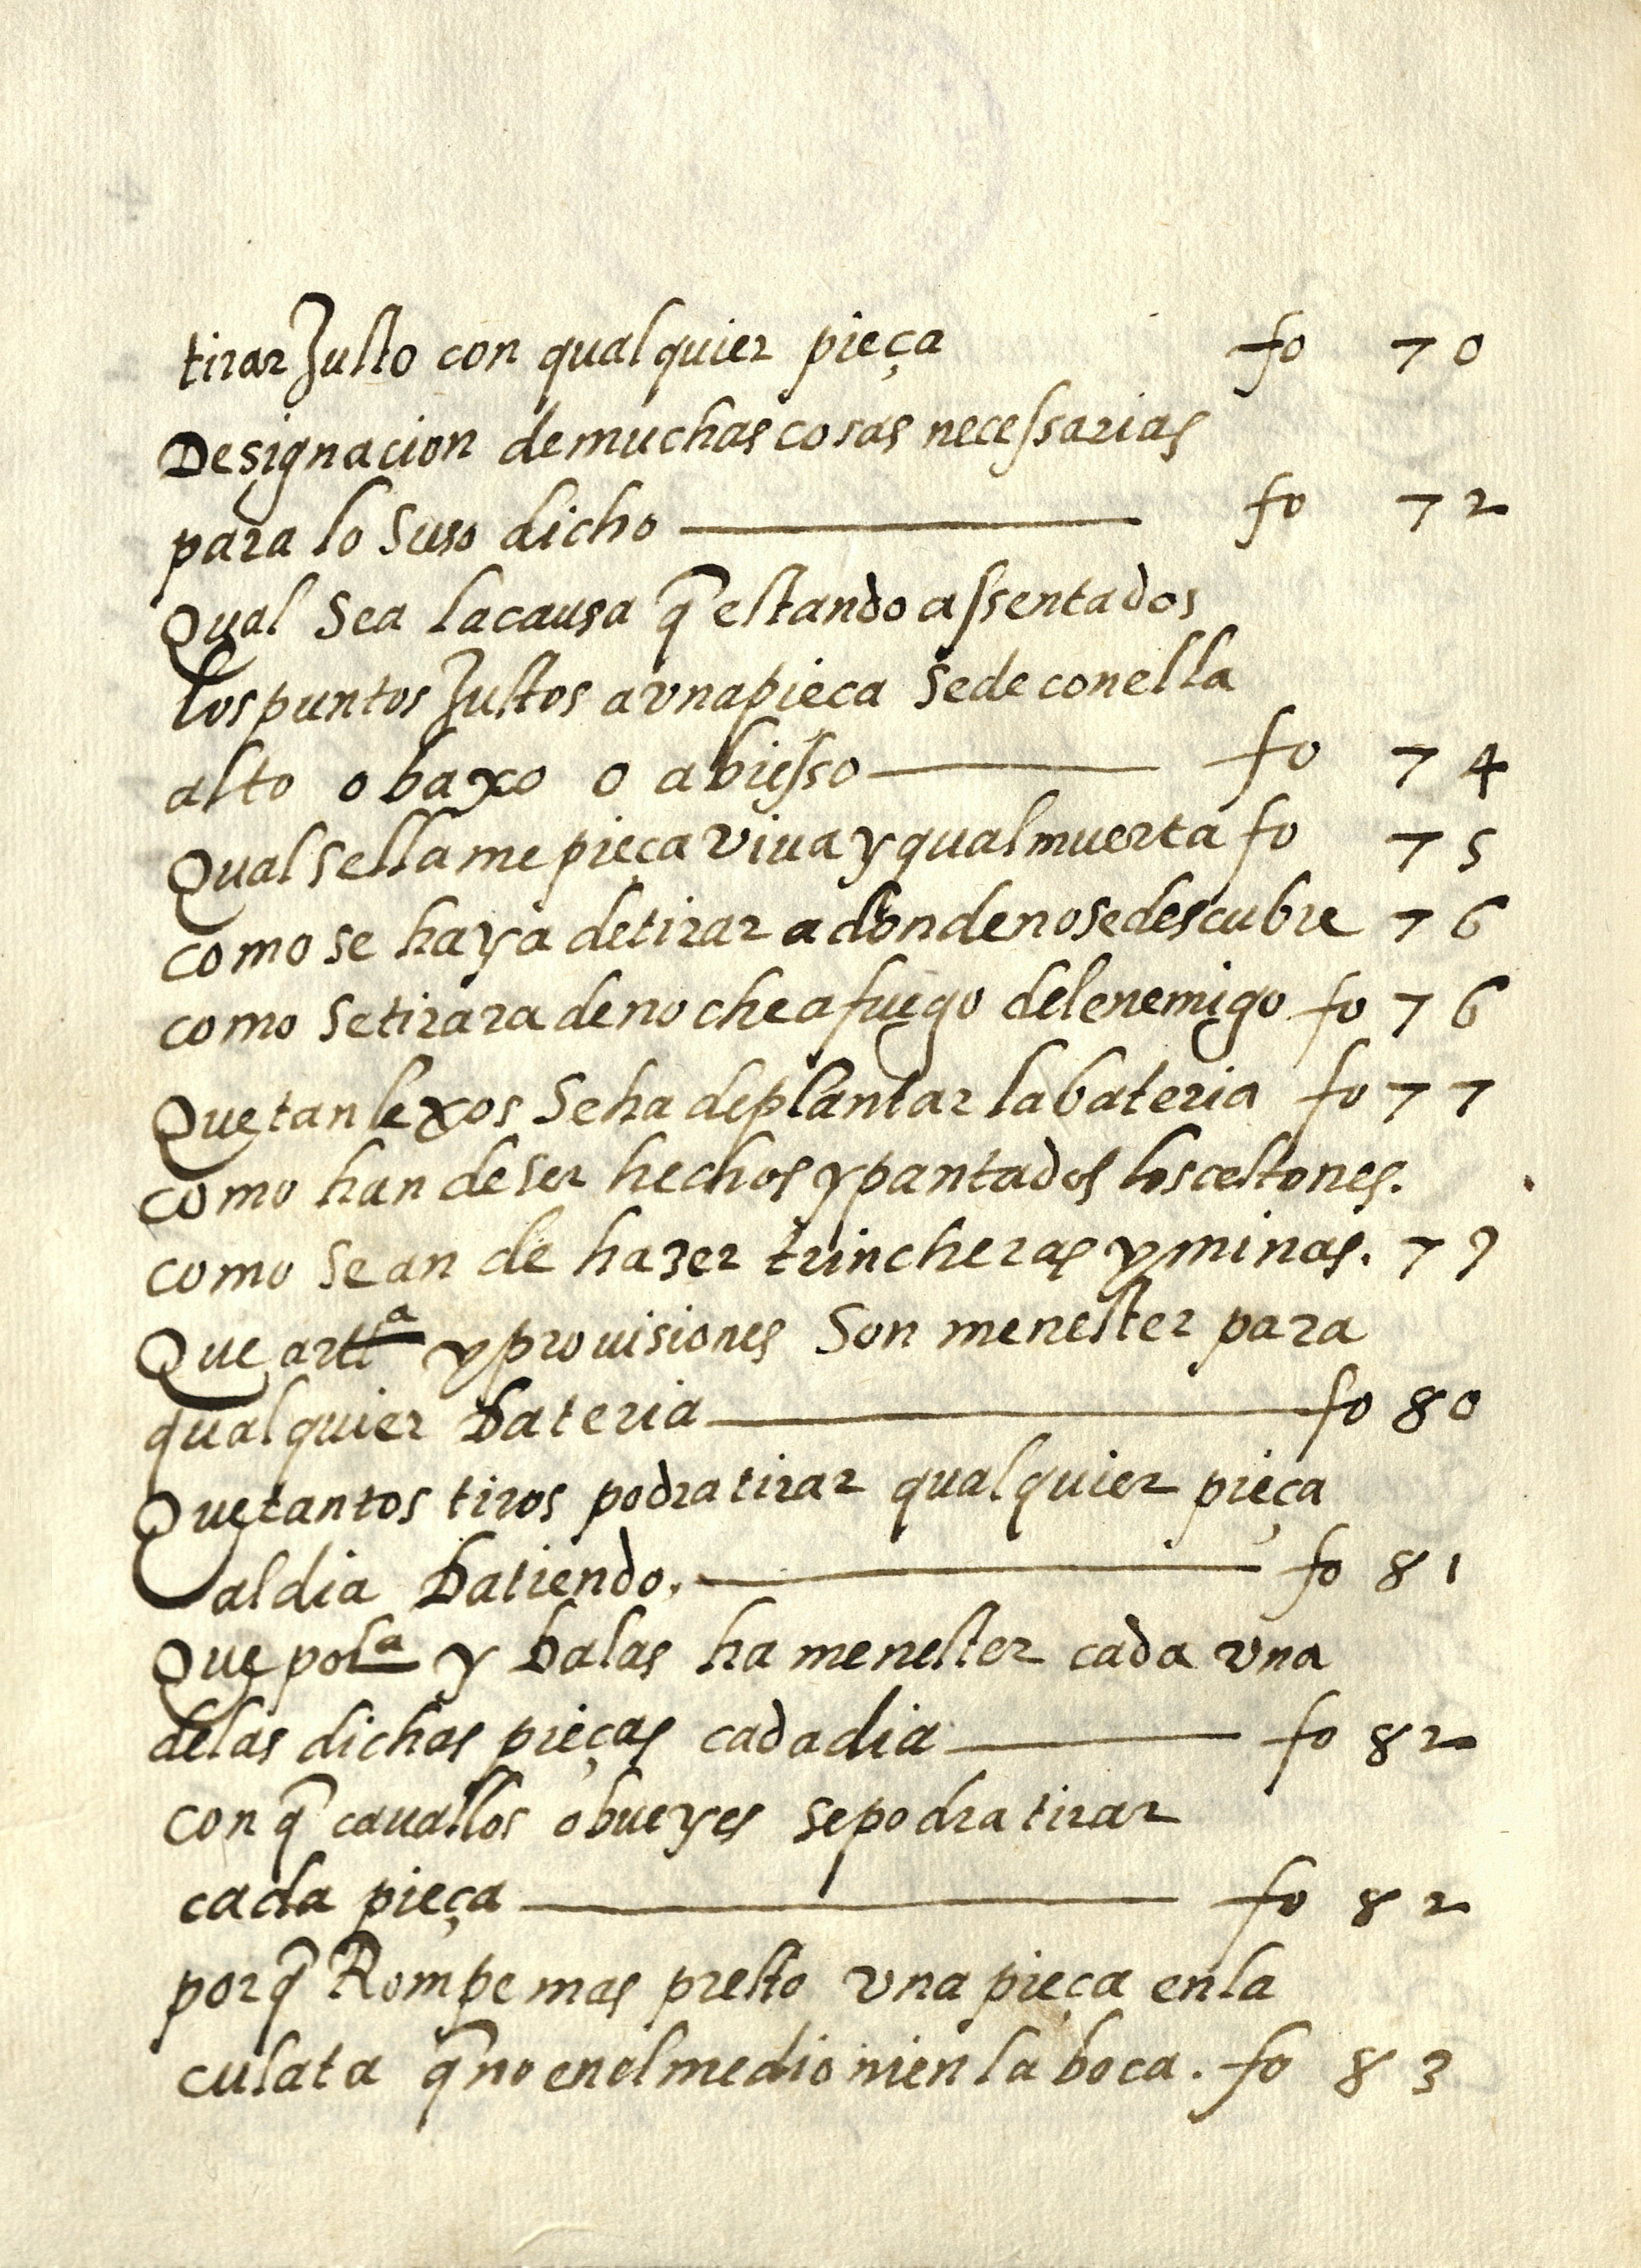 tirar Justo con qualquier pieça fo 70
Designacion de muchas cosas necessarias
para lo suso dicho fo 72
Qual sea la causa q̃ estando assentados
los puntos Justos a vna pieca se de con ella
alto o baxo o abiesso fo 74
Qual se llame pieça viua y qual muerta fo 75
como se haya de tirar a donde no se descubre 76
como se tirara de noche a fuego del enemigo fo 76
Que tan lexos se ha de plantar la bateria fo 77
como han de ser hechos y pantados los cestones.
como se an de hazer trincheras y minas. 79
Que artiª y prouisiones son menester para
qualquier bateria fo 80
Que tantos tiros podra tirar qualquier pieça
al dia batiendo. fo 81
Que polª y balas ha menester cada vna
de las dichas pieças cada dia fo 82
con q̃ cauallos o bueyes se podra tirar
cada pieça fo 82
por q̃ Rompe mas presto vna pieça en la
culata q̃ no en el medio ni en la boca. fo 83